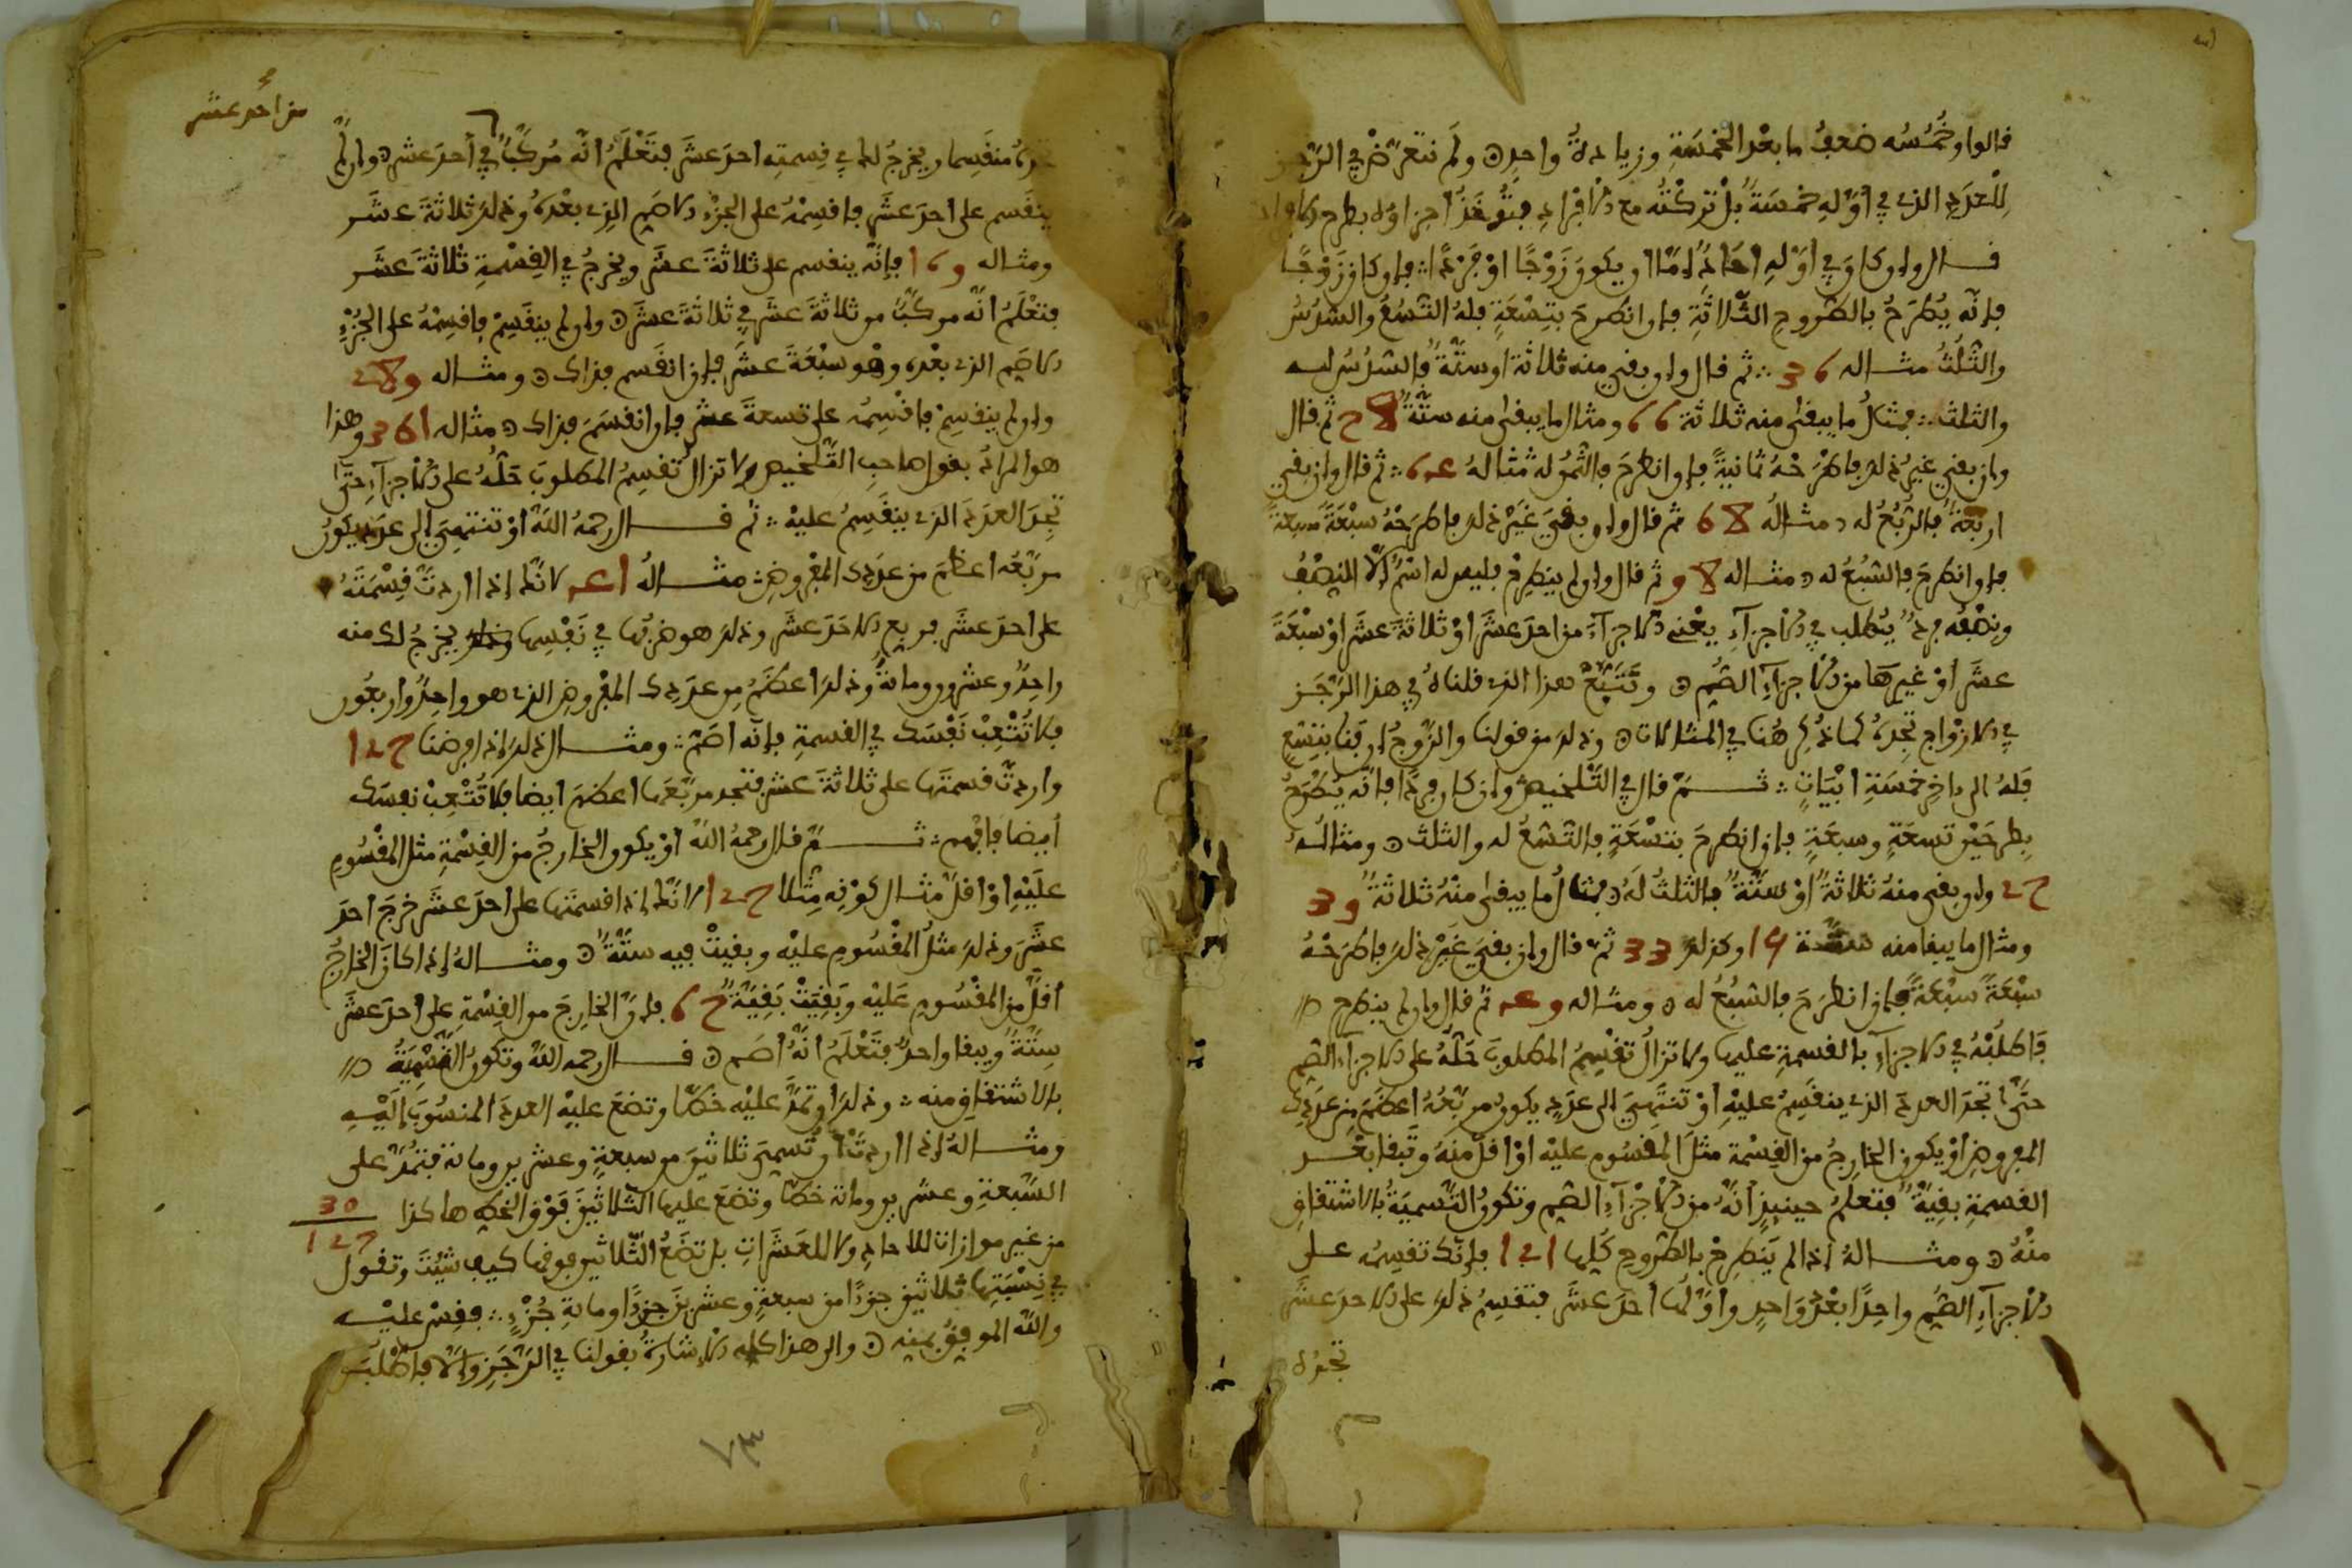 قالوا وخُمُسُه ضعفُ ما بعْدَ الخمْسَةِ وزيادةُ واحدٍ ولم نتعرّضْ في الرّجز
لِلْعدَدِ الذي في أوّلهِ خمسَةٌ بلْ تركْتُه مع الأفْرادِ فتُؤخَذُ أجزاؤُه بطرح الأفراد
قال وإن كان في أوّلهِ أحَادٌ إمّا أن يكونَ زَوْجًا أوْ فَرْدًا فإن كان زَوْجًا
فإنّه يُطرَحُ بالطّروحِ الثّلاثَةِ فإن انطرحَ بتِسْعَةٍ فلهُ التّسُعُ والسّدُسُ
والثّلُثُ مثاله 36 ثم قال وإن بقي منه ثلاثة أو ستّةٌ فالسّدُسُ له
والثلث فمثالُ ما يبقى منه ثلاثة 66 ومثال ما يبقى منه ستّةٌ 78 ثم قال
وإن بقي غيرُ ذلكَ فاطْرَحْهُ ثمانيةً فإن انطرحَ فالثّمُنُ له مثالهُ 64 ثم قال وإن بقي
أربَعَةٌ فالرّبُعُ له مثالهُ 68 ثم قال وإن بقيَ غَيْرُ ذلكَ فاطرَحْهُ سبْعَةً سبعةً
فإن انطرحَ فالسّبُعُ له مثاله 98 ثم قال وإن لم ينطرِحْ فليس له اسْمٌ إلّا النّصْفُ
ونِصْفُه فردٌ يُطلب في الأجزآءِ يعْني الأجزآءَ من احدَ عشَرَ أوْ ثلاثةَ عشَرَ أوْ سبْعَةَ
عشَرَ أوْ غيرِهَا من الأجزآءِ الصُّمِّ وتَتَبّعْ هذا الذي قلناهُ في هذا الرّجَزِ
في الأزْواجِ تجِدهُ كما ذُكِرَ هُنا في المثالات وذلكَ من قولنا والزّوجُ إن فَنا بتِسْعٍ
فَلهُ الى ءاخِرِ خمسَةِ أبْيَاتٍ ثمّ قال في التّلخيص وإن كان فردًا فإنّه يُطْرَحُ
بِطرحَيْنِ تسعَةٍ وسبعَةٍ فإن انطرحَ بتسْعَةٍ فالتّسُعُ له والثلث ومثالُه
27 وإن بقى منهُ ثلاثةٌ أوْ ستّةٌ فالثلثُ لَهُ مثالُ ما يبقى منْهُ ثلاثةٌ 39
ومثال ما يبقا منه ستّة 15 وكذلكَ 33 ثم قال وإن بقيَ غَيْرُ ذلكَ فاطرَحْهُ
سبْعَةً سبْعَةً فإن انطرَحَ فالسّبُعُ له ومثاله 49 ثم قال وإن لم ينطرح
فَاطْلُبْهُ في الأجزآءِ بالقسمةِ عليها ولا تزالُ تقْسِمُ المطلوبَ حَلّهُ على الأجزآء الصم
حتّى تجدَ العددَ الذي ينقَسِمُ عليْهِ أوْ تنتَهِيَ الى عدَدٍ يكونُ مربّعُهُ أعظَمَ من عدَدِك
المفروض أوْ يكون الخارِجُ من القِسْمةِ مثلَ المقْسُومِ عليْه أوْ أقلّ منهُ وتبقا بعْد
القسمةِ بقيّةٌ فتعلمُ حينيذٍ أنّهُ من الأجْزآءِ الصم وتكونُ التّسميَةُ بالاشتقاقِ
منْهُ ومثالهُ إذا لم يَنطرِحْ بالطّروح كُلِّها 121 فإنّك تقسِمُه على
الأجزآءِ الصُّمِّ واحِدًا بعْدَ وَاحِدٍ وأوّلُها احدَ عشَرَ فتقسِمُ ذلكَ على الاحدَ عشَرَ
تجدُه
من أحدَ عشر
تجدهُ منقَسِما ويخرجُ لك في قسمتِه احدَ عشَرَ فتَعْلَمُ أنّه مُركّبٌ في أحدَ عشر وإن لم
ينقَسم على احدَ عشَرَ فاقسِمْهُ على الجزْءِ الأصَمِّ الذي بعْدَهُ وذلكَ ثلاثةَ عشَرَ
ومثاله 169 فإنّه ينقسم على ثلاثةَ عشَرَ ويخرجُ في القِسْمةِ ثلاثةَ عشَر
فتعْلَمُ أنّه مركّبٌ من ثلاثةَ عشَرَ في ثلاثةَ عشَرَ وإن لم ينقَسِمْ فاقسِمْهُ على الجُزْءِ
الأصَمِّ الذي بعْدَه وهْو سبْعَةَ عشَرَ فإن انقَسم فذاك ومثاله 289
وإن لم ينقسِمْ فاقْسِمْه على تسعةَ عشَرَ فإن انقسَمَ فذاك مثاله 361 وهذا
هو المرادُ بقول صاحب التّلخيص ولا تزالُ تقسِمُ المطلوبَ حَلُّهُ على الأجزآءِ حتّى
تجدَ العدَدَ الذي ينقَسِمُ عليْه ثم قال رحمهُ اللهُ أوْ تنتهيَ إلى عدَدٍ يكونُ
مربّعُه أعظمَ من عدَدِك المفروضِ مثالهُ 41 لأنّك إذا أردتّ قِسْمَتَهُ
على احدَ عشَرَ فمربع الأحَدَ عشَرَ وذلكَ هو ضرْبُها في نَفْسِها يخرجُ لك منه
واحدٌ وعشرون ومائةٌ وذلكَ أعظَمُ من عدَدِك المفروض الذي هو واحِدٌ وأربعُون
فلا تُتْعِبْ نَفْسَك في القسمةِ فإنّه أصَمّ ومثال ذلكَ إذا فرضنا 127
وأردتّ قسمتَها على ثلاثةَ عشَر فتجد مربّعَها أعظمَ أيضا فلا تُتْعِبْ نفسَك
أيضا فافهم ثمّ قال رحمهُ اللهُ أوْ يكون الخارجُ من القِسْمةِ مثلَ المقْسُومِ
علَيْهِ أوْ أقلّ مثال كوْنِه مِثْلا 127 لأنّك إذا قسمتَها على احدَ عشَرَ خرجَ احدَ
عشَرَ وذلكَ مثلُ المقْسُومِ عليْه وبقيتْ فيه ستّةٌ ومثالهُ إذا كانَ الخارجُ
أقلّ من المقْسُومِ عَليْه وبَقِيَتْ بَقِيّةٌ 67 فإنّ الخارِجَ من القِسْمةِ على أحدَ عشَرَ
سِتّةٌ ويبقا واحدٌ فتَعْلَمُ أنّهُ أصَم قال رحمه اللهُ وتكونُ التّسْمِيَةُ
بالاشتقاقِ منه وذلكَ أن تمدّ عليْه خَطّا وتضعَ عليْهِ العددَ المنسُوبَ إلَيْهِ
ومثالهُ إذا أردتْ أن تُسميَ ثلاثينَ من سبعةٍ وعشرين ومائة فتمُدّ على
السّبعةِ وعشرين ومائة خطّا وتضعَ عليها الثّلاثينَ فَوْقَ الخط هاكذا 30
127
من غير موازات للاحادِ ولا للعَشَراتِ بل تضَعُ الثّلاثين فوقها كيف شيْتَ وتقول
في نِسْبَتِها ثلاثين جزءًا من سبعةٍ وعشرينَ جزءًا ومائةِ جُزْءٍ فقِسْ عليْه
والله الموفقُ بمنه والى هذا كله الإشارةُ بقولنا في الرّجَزِ وإلّا فاطْلُبَن